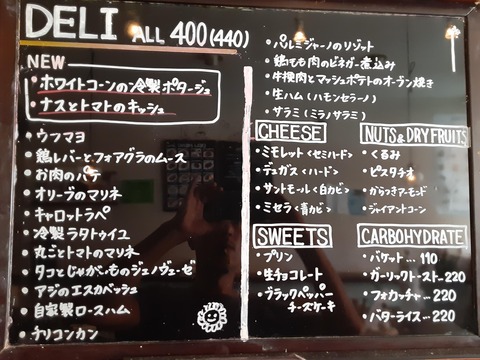 DELI ALL 400(440)
NEW
・ホワイトコーンの冷製ポタージュ
・ナスとトマトのキッシュ
・ウフマヨ
・鶏レバーとフォアグラのムース
・お肉のパテ
・オリーブのマリネ
・キャロットラペ
・冷製ラタトゥイユ
・丸ごとトマトのマリネ
・タコとじゃがいものジェノヴェーゼ
・アジのエスカベッシュ
・自家製ロースハム
・チリコンカン
・パルミジャーノのリゾット
・鶏もも肉のビネガー煮込み
・牛挽肉とマッシュポテトのオーブン焼き
・生ハム(ハモンセラーノ)
・サラミ(ミラノサラミ)
CHEESE
・ミモレット<セミハード>
・デュガス<ハード>
・サントモール<白カビ>
・ミセラ<青カビ>
NUTS&DRYFRUITS
・くるみ
・ピスタチオ
・からつきアーモンド
・ジャイアントコーン
SWEETS
・プリン
・生チョコレート
・ブラックペッパー
チーズケーキ
CARBOHYDRATE
・バケット… 110
・ガーリックトースト…220
・フォカッチャ…220
・バターライス…220